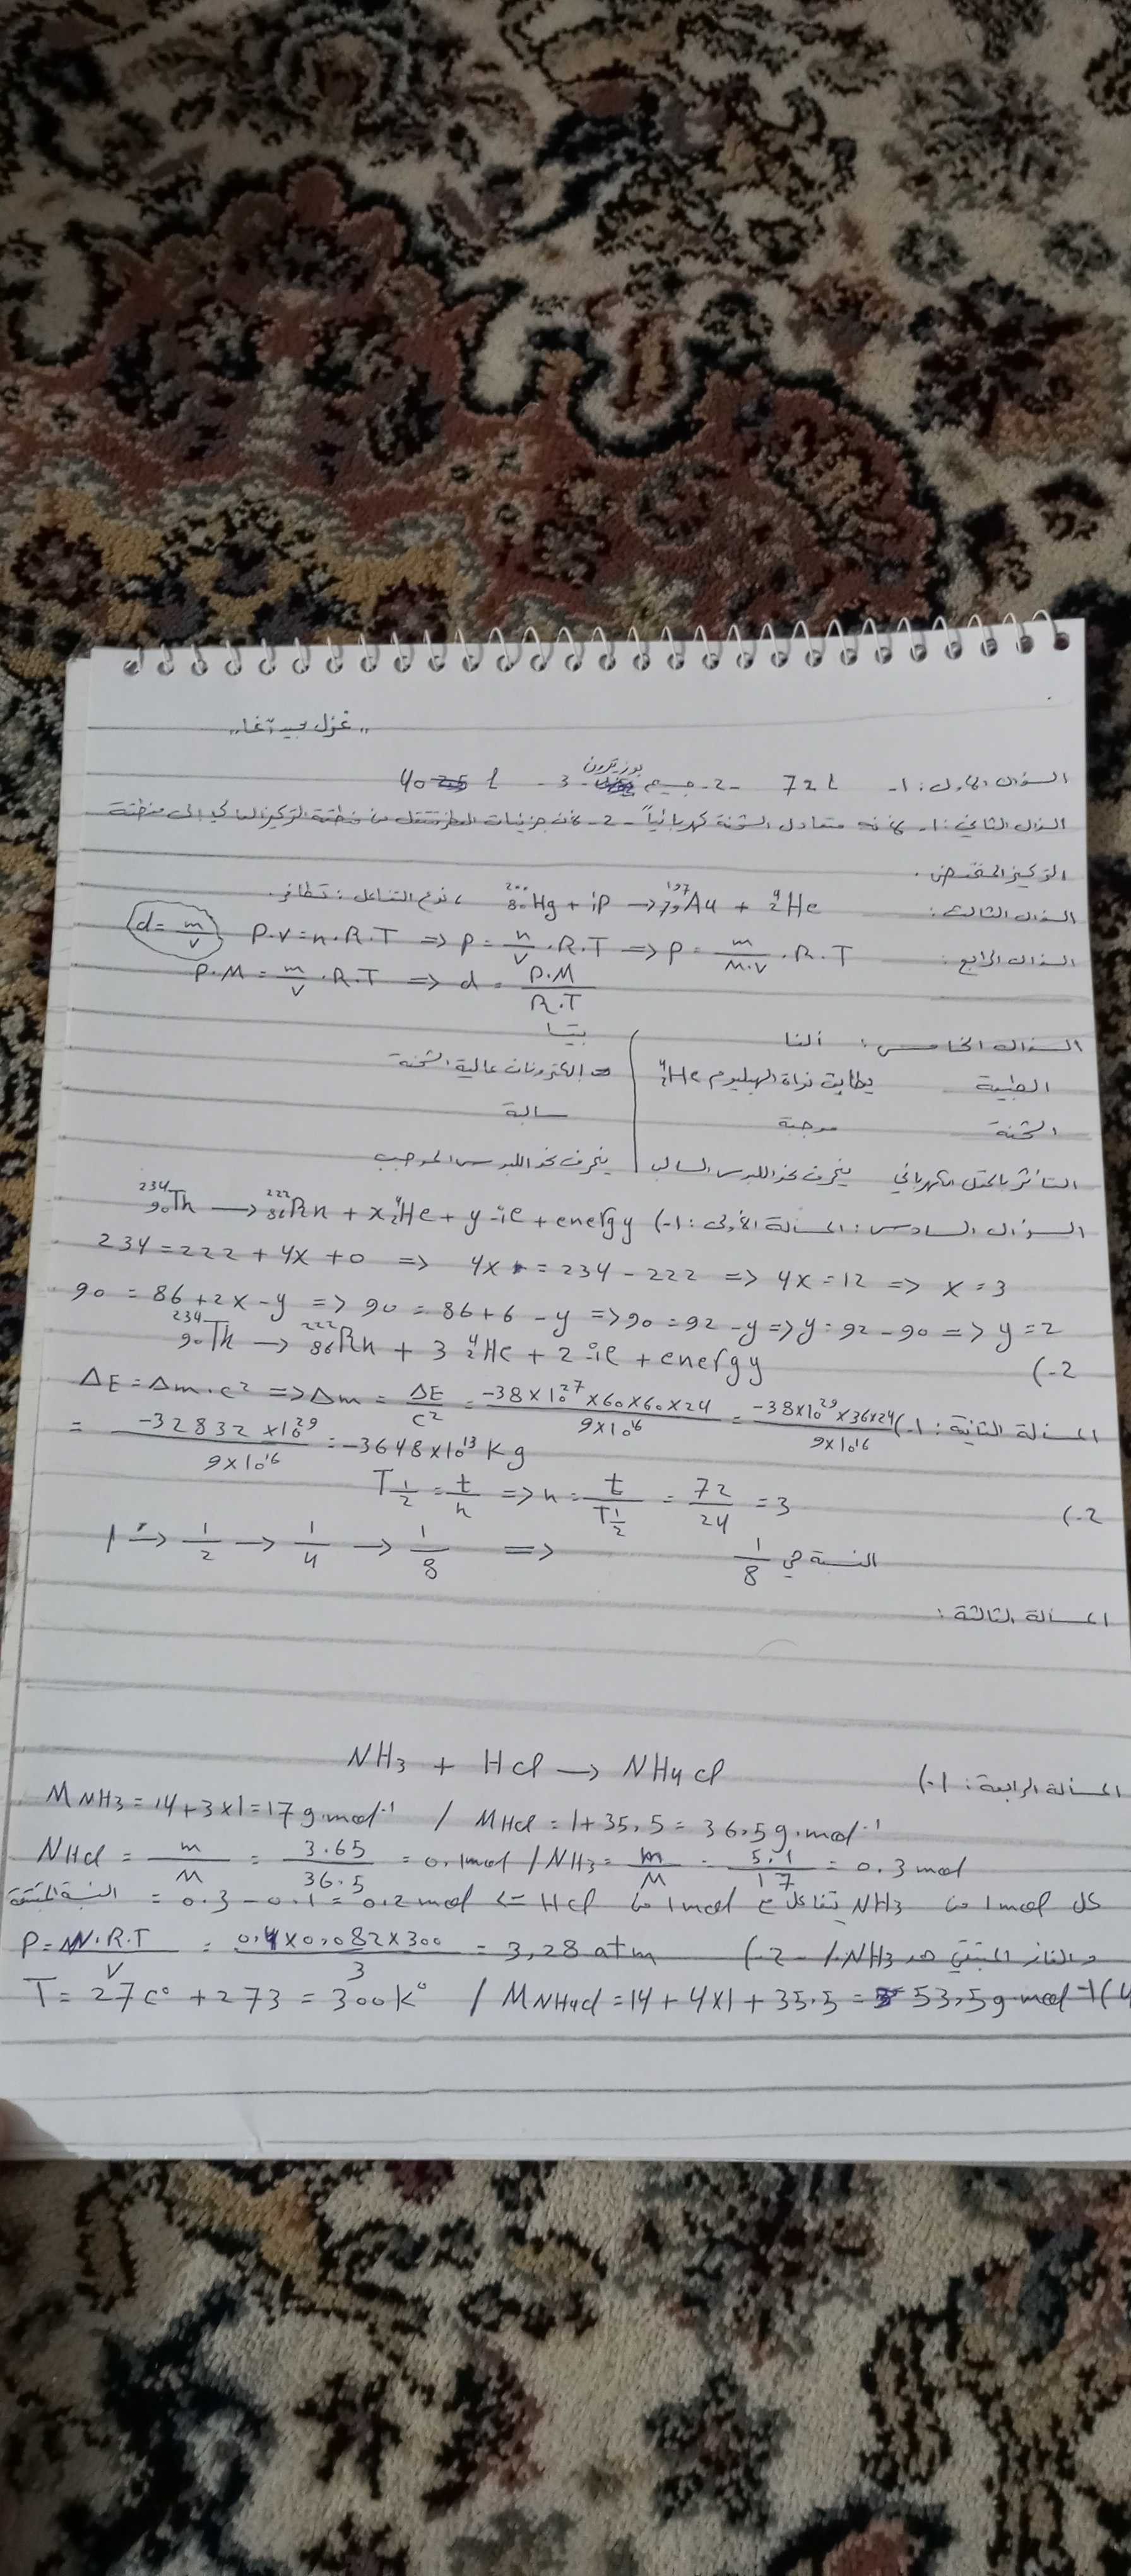 السؤال الأول: 1- 72 L 2- جسيم بوزيترون 3- 40 L
السؤال الثاني: 1- لأنه معتدل الشحنة كهربائياً - 2- لأن جزيئات العطر تنتقل من منطقة التركيز العالي إلى منطقة
التركيز المنخفض.
السؤال الثالث: ²⁰⁰₈₀Hg + ¹₁P → ¹⁹⁷₇₉Au + ⁴₂He ، نوع التفاعل: تطافر.
السؤال الرابع: P.V = n.R.T ⇒ P = n/V .R.T ⇒ P = m/M.V .R.T d = m/V
P.M = m/V .R.T ⇒ d = P.M/R.T
السؤال الخامس: ألفا بيتا
الطبيعة يطابق نواة الهيليوم ⁴₂He إلكترونات عالية الشحنة
الشحنة موجبة سالبة
التأثر بالحقل الكهربائي ينحرف نحو اللبوس السالب ينحرف نحو اللبوس الموجب
السؤال السادس: المسألة الأولى: 1-) ²³⁴₉₀Th → ²²²₈₆Rn + x ⁴₂He + y ⁰₋₁e + energy
234 = 222 + 4x + 0 => 4x = 234 - 222 => 4x = 12 => x = 3
90 = 86 + 2x - y => 90 = 86 + 6 - y => 90 = 92 - y => y = 92 - 90 => y = 2
2-) ²³⁴₉₀Th → ²²²₈₆Rn + 3 ⁴₂He + 2 ⁰₋₁e + energy
المسألة الثانية: 1-) ΔE = Δm.c² => Δm = ΔE/c² = -38×10²⁷×60×60×24/9×10¹⁶ = -38×10²⁹×36×24/9×10¹⁶
= -32832×10²⁹/9×10¹⁶ = -3648×10¹³ Kg
2-) T½ = t/n => n = t/T½ = 72/24 = 3
1 → 1/2 → 1/4 → 1/8 => النسبة هي 1/8
المسألة الثالثة:
المسألة الرابعة: 1-) NH₃ + HCl → NH₄Cl
M NH₃ = 14 + 3×1 = 17 g.mol⁻¹ / M HCl = 1 + 35,5 = 36.5 g.mol⁻¹
N HCl = m/M = 3.65/36.5 = 0.1 mol / NH₃ = m/M = 5.1/17 = 0.3 mol
كل 1 mol من NH₃ تتفاعل مع 1 mol من HCl <= 0.3 - 0.1 = 0.2 mol = النسبة المتبقية
والغاز المتبقي هو NH₃ / 2-) P = N.R.T/V = 0.4×0.082×300/3 = 3,28 atm
T = 27 c° + 273 = 300 K° / M NH₄Cl = 14 + 4×1 + 35.5 = 53,5 g.mol⁻¹ (4